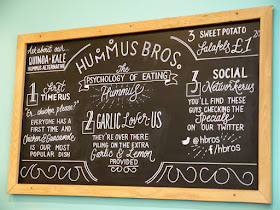 Ask about our
QUINOA + KALE
HUMMUS ALTERNATIVE
HUMMUS BROS.
The
PSYCHOLOGY OF EATING
Hummus
1 First
TIMERUS
"Er, chicken please?"
EVERYONE HAS A
FIRST TIME AND
Chicken & Guacamole
IS OUR MOST
POPULAR DISH
2 GARLIC Lover-US
THEY'RE OVER THERE
PILING ON THE EXTRA
Garlic & Lemon
PROVIDED
3 SWEET POTATO
falafels £1
3 SOCIAL
Networkerus
YOU'LL FIND THESE
GUYS CHECKING THE
Specials
ON OUR TWITTER
@hbros
f/hbros